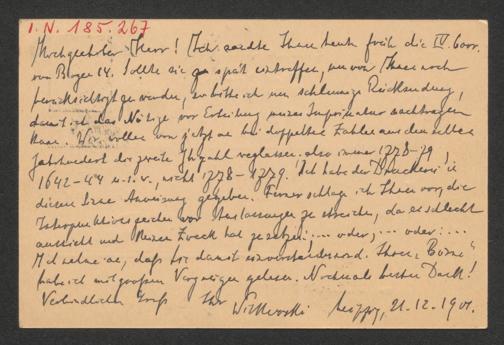 I.N. 185.267
Hochgeehrter Herr! Ich sandte Ihnen heute früh die IV Corr.
von Bogen 14. Sollte sie zu spät eintreffen, um von Ihnen noch
berücksichtigt zu werden, so bitte ich um schleunige Rücksendung,
damit ich das Nötige vor Erteilung meines Imprimatur nachtragen
kann. Wir wollen von jetzt an bei doppelten Zahlen aus demselben
Jahrhundert die zweite Jhzahl weglassen. also immer 1778–79
1642–44 u.s.w., nicht 1778–1779! Ich habe der Druckerei in
diesem Sinne Anweisung gegeben. Ferner schlage ich Ihnen vor, die
Interpunktionszeichen vor Auslassungen zu streichen, da es schlecht
aussieht und keinen Zweck hat zu setzen: .... oder, ... oder: ...
Ich nehme an, daß Sie damit einverstanden sind. Ihren „Börne“
habe ich mit großem Vergnügen gelesen. Nochmals besten Dank!
Verbindlichen Gruß Ihr Witkowski Leipzig, 21.12.1901.